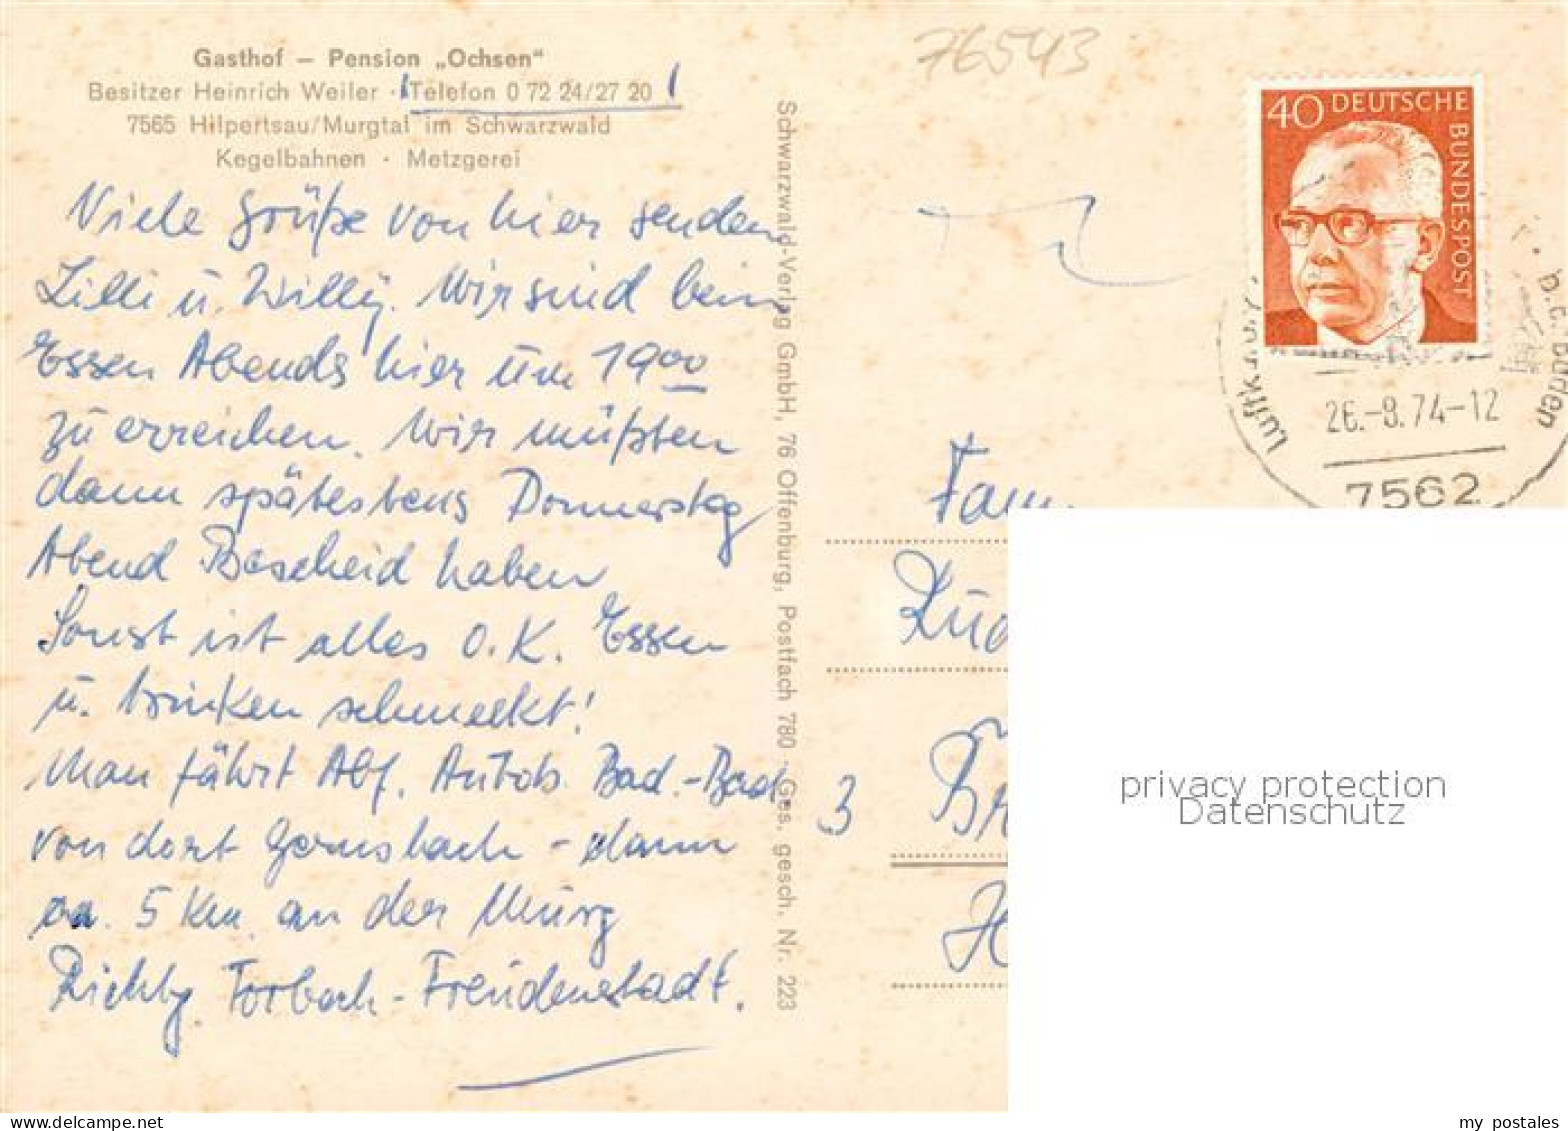 Gasthof – Pension „Ochsen“
Besitzer Heinrich Weiler · Telefon 0 72 24/27 20
7565 Hilpertsau/Murgtal im Schwarzwald
Kegelbahnen · Metzgerei
Viele Grüße von hier senden
Lilli u. Willÿ. Wir sind beim
Essen Abends hier um 19oo
zu erreichen. Wir müßten
dann spätestens Donnerstag
Abend Bescheid haben
Sonst ist alles O.K. Essen
u. trinken schmeckt!
Man fährt Abf. Autob. Bad.-Bad.
von dort Gernsbach – dann
ca. 5 Km an der Murg
Richtg. Forbach - Freudenstadt.
Schwarzwald-Verlag GmbH, 76 Offenburg, Postfach 780 - Ges. gesch. Nr. 223
76543
40 DEUTSCHE
BUNDESPOST
26.-8.74-12
7562
Fam.
3
privacy protection
Datenschutz
my postales